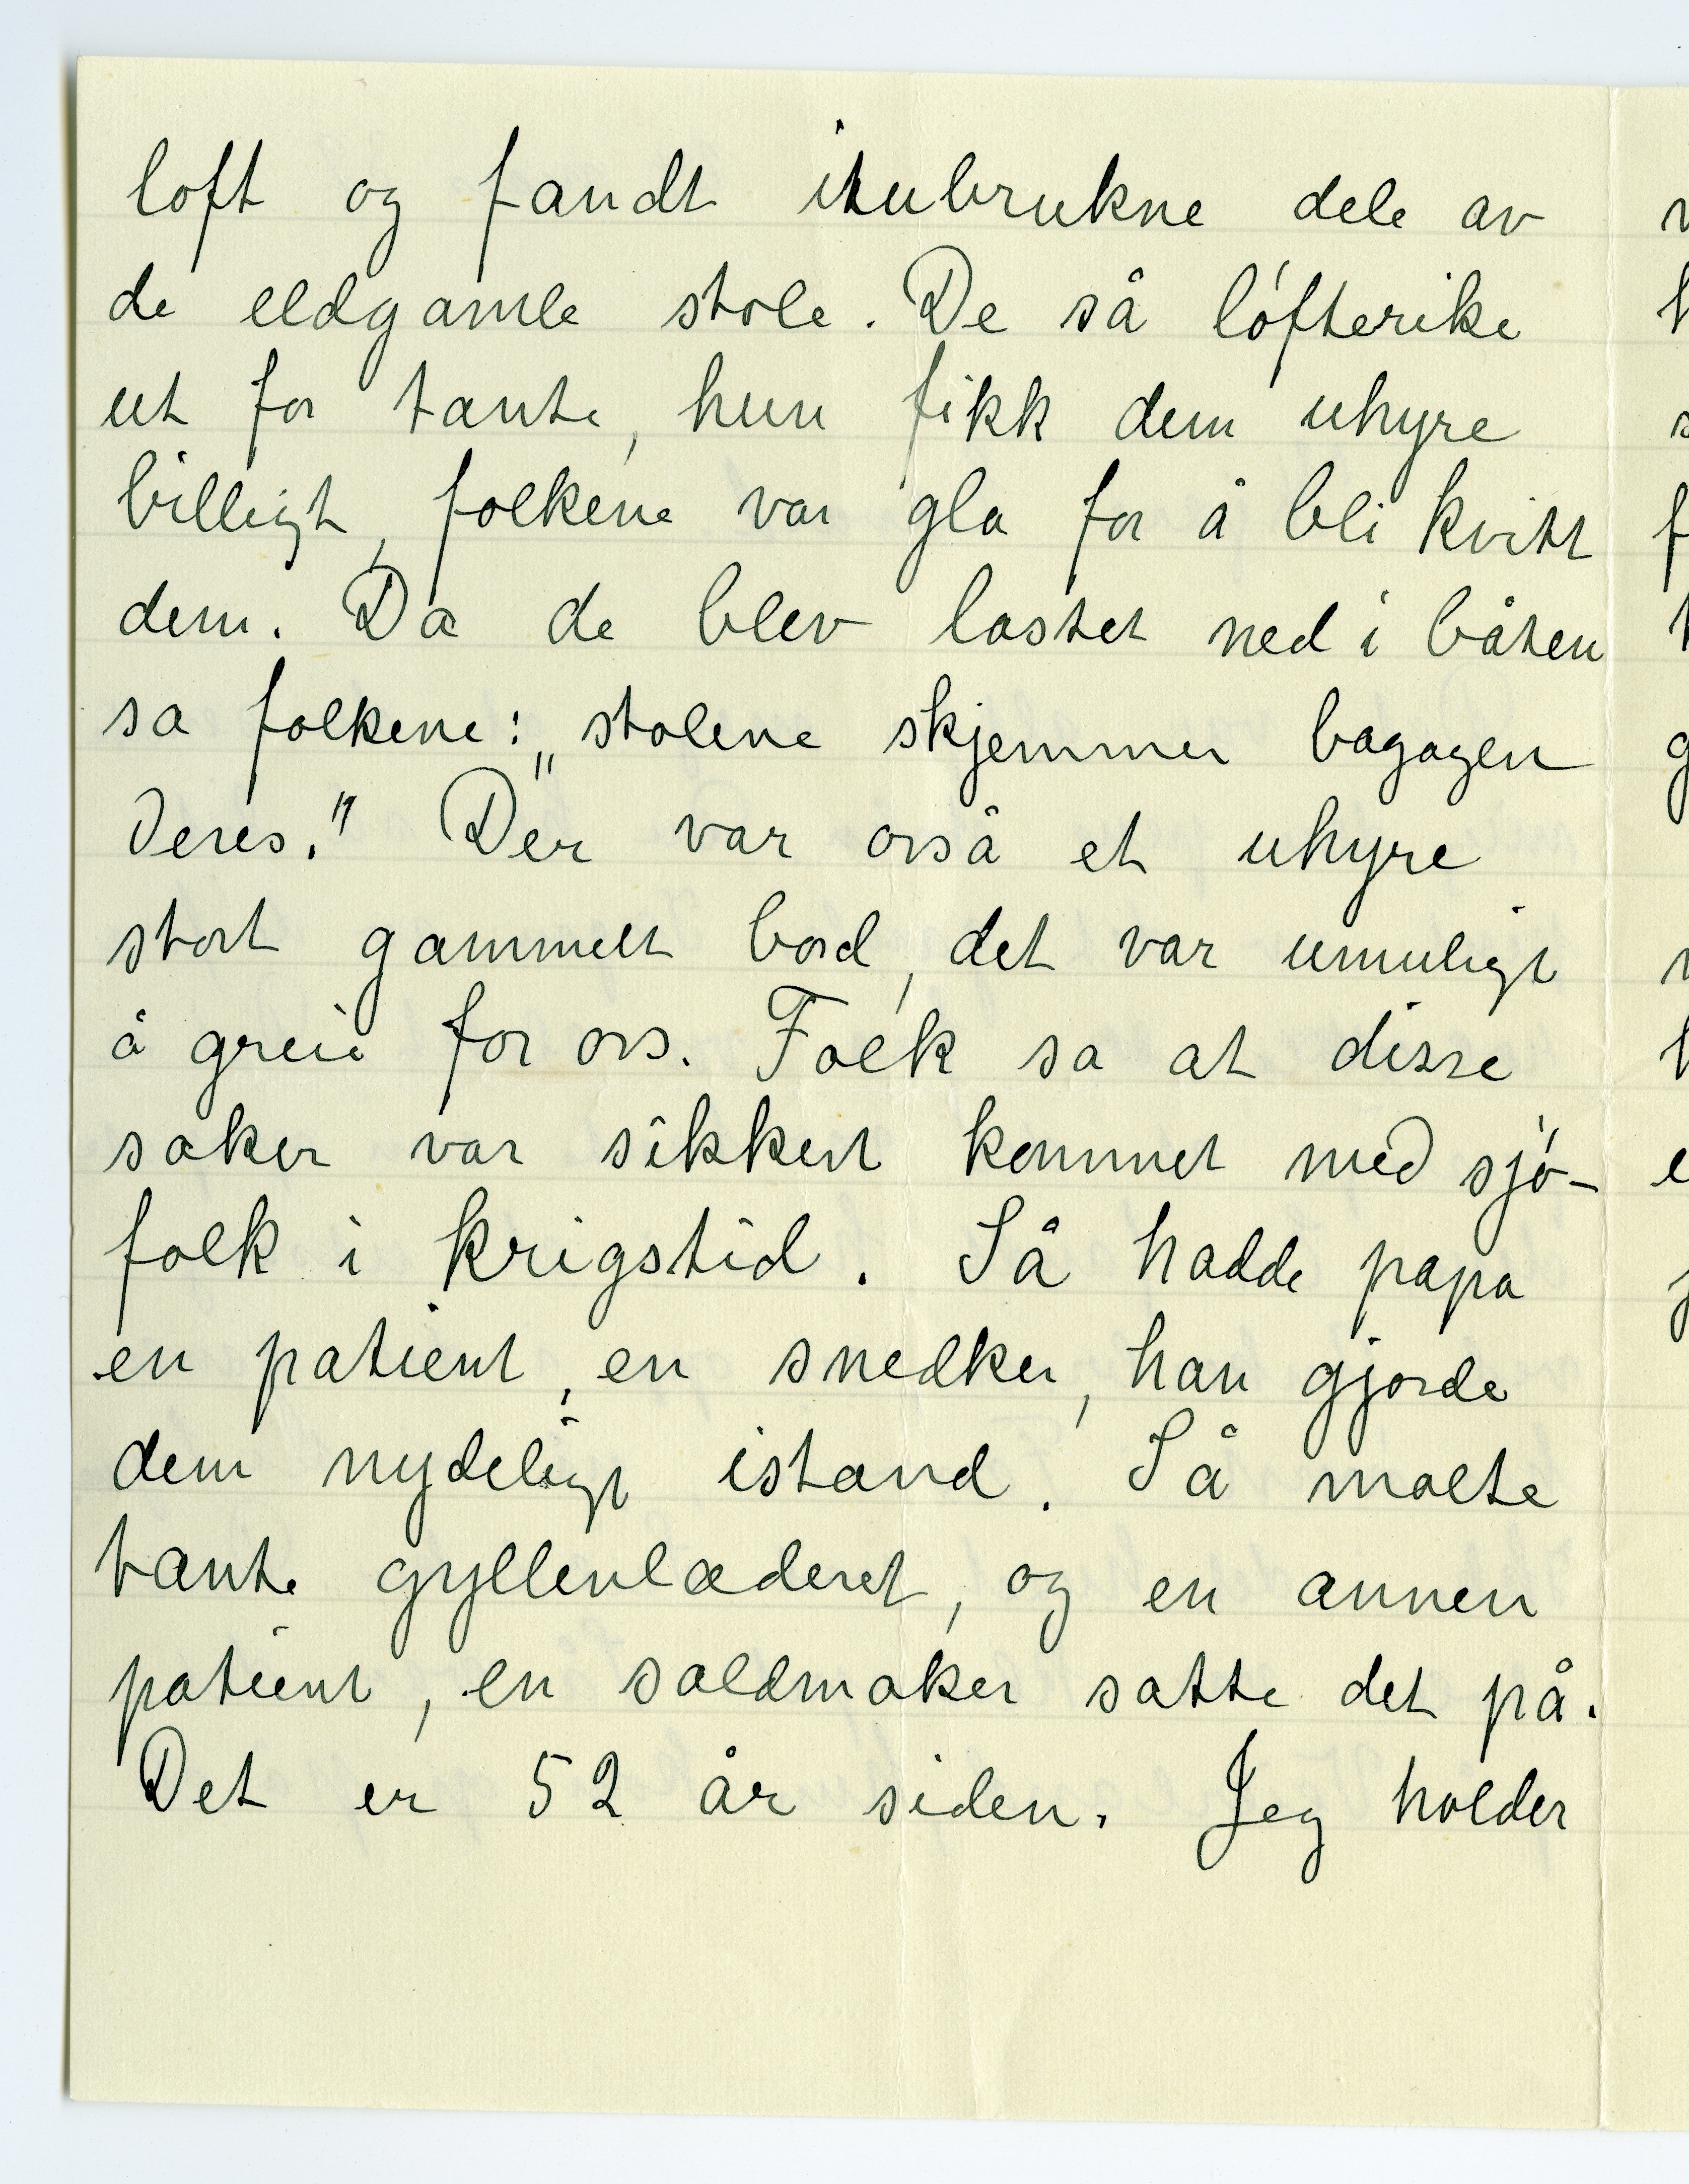 loft og fandt itubrukne dele av
de eldgamle stole. De så löfterike
ut for tante, hun fikk dem uhyre
billigt, folkene var gla for å bli kvitt
dem. Da de blev lastet ned i båten
sa folkene: „stolene skjemmer bagagen
Deres." Der var också et uhyre
stort gammelt bord, det var umuligt
å greie for oss. Folk sa at disse
saker var sikkert kommet med sjö-
folk i krigstid. Så hadde papa
en patient, en snedker, han gjorde
dem nydeligt istand. Så malte
tante gyllenlæderet, og en annen
patient, en salmaker satte det på.
Det er 52 år siden. Jeg holder